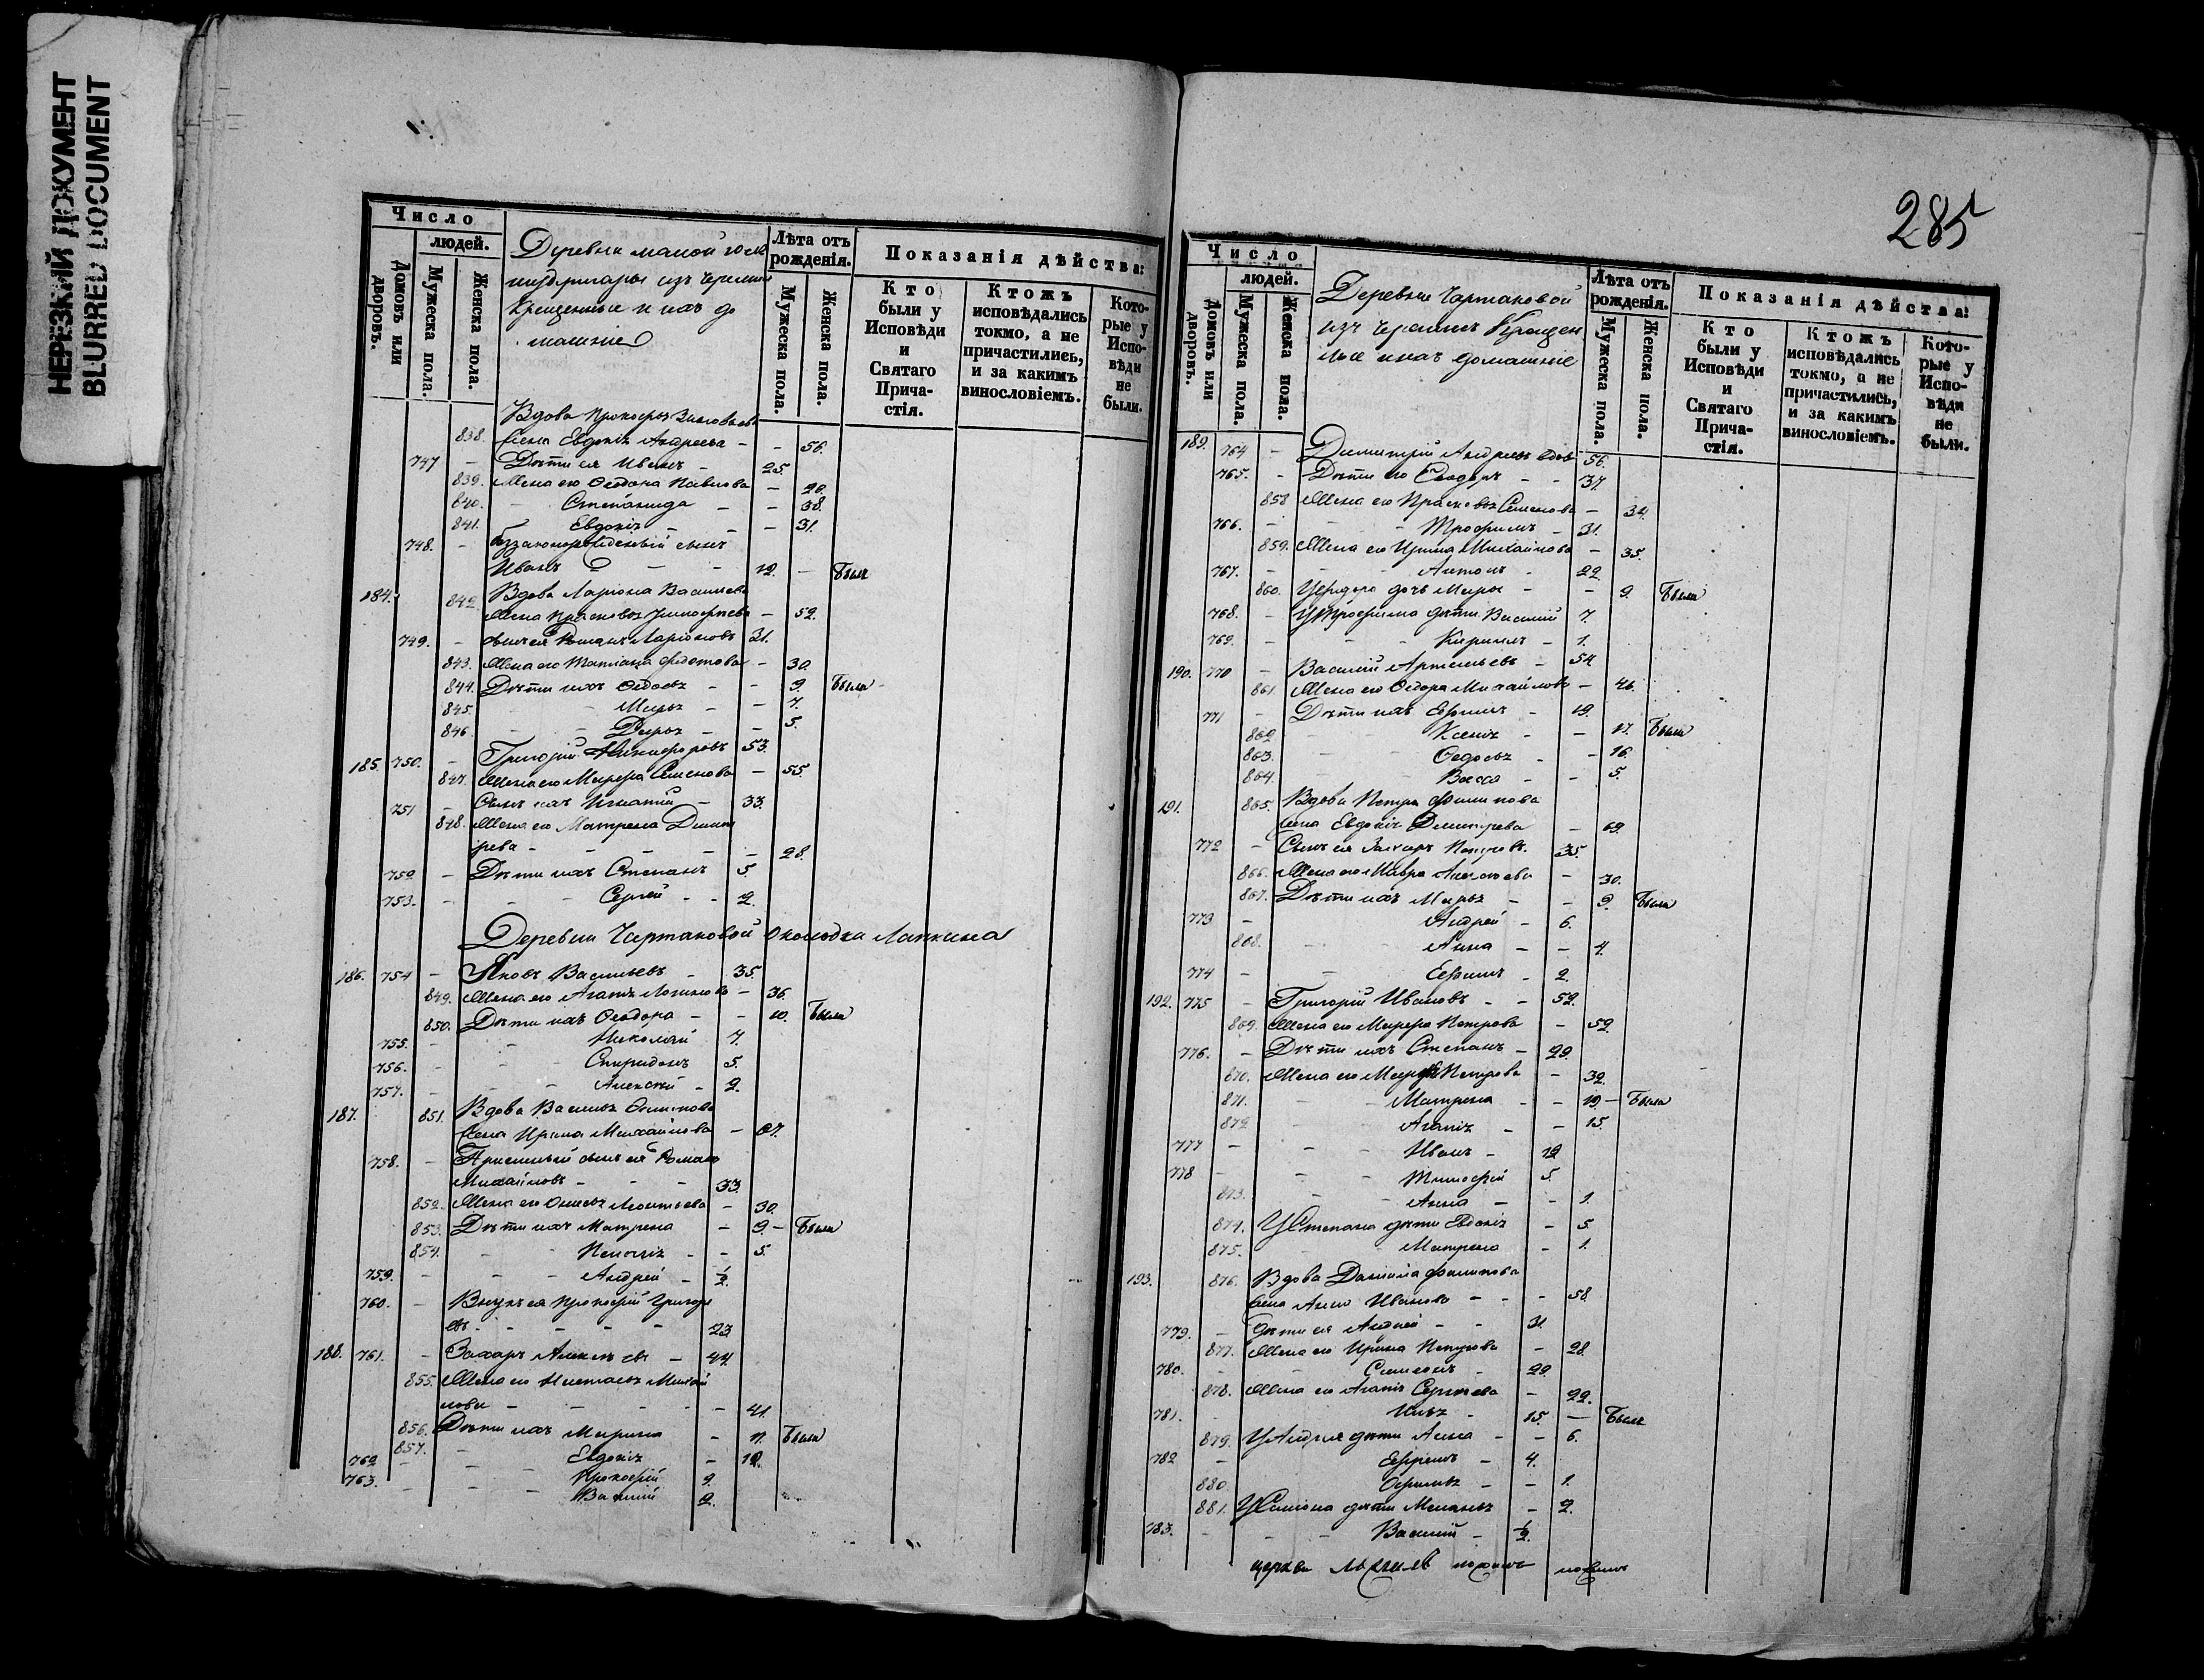 НЕРЕЗКИЙ ДОКУМЕНТ
BLURRED DOCUMENT
Число
людей.
Домовъ или дворовъ.
Мужеска пола.
Женска пола.
Деревни малой
изъ черемисъ
крещенные и ихъ до
машніе
Лѣта отъ рожденія.
Мужеска пола.
Женска пола.
Показанія дѣйства:
Кто были у Исповѣди и Святаго Прича-стія.
Ктожъ исповѣдались токмо, а не причастились, и за какимъ винословіемъ.
Кото-рые у Испо-вѣди не были.
Вдова Прокофья
838. жена Евдокія Андреева - - 56.
747 - Дѣти ея Иванъ - 25.
839. Жена его Феодора Павлова - 20.
840. - Степанида - - 38.
841. Евдокія - - - 31.
748. - беззаконорожденный сынъ
Иванъ - - 12. - Былъ
184. 842. Вдова Ларіона Васильева
жена Прасковья Тимофеева - 52.
749. - сынъ ея Романъ Ларіоновъ 31.
843. Жена его Татіана Федотова - 30.
844. Дѣти ихъ Федосья - - 9. Была
845. Марья - - 7.
846. Дарья - - 5.
185. 750. - Григорій Никифоровъ 53.
847. Жена его Марфа Семенова - 55.
751 - Сынъ ихъ Игнатій - 33.
848. Жена его Матрена Димит
рева - - - - 28.
752 - Дѣти ихъ Степанъ 5.
753. - - - Сергей - - 2.
Деревни Чартаковой околодка Лапкина
186. 754 - Яковъ Васильевъ - 35.
849. Жена его Агапія Логинова - 36.
850. Дѣти ихъ Феодора - - 10. Была
755. - - Николай 7.
756. - - Спиридонъ 5.
757. - - - Алексей - 2.
187. 851. Вдова Василья Осипова
жена Ирина Михайлова - 67.
758. - Пріемный сынъ ея Романъ
Михайловъ - - - 33.
852. Жена его Онисья Леонтьева - 30.
853. Дѣти ихъ Матрена - 9. - Была
854. - - Пелагія - - 5.
759. - - - Андрей - ½
760. - Внукъ ея Прокофій Григорь
евъ - - - - 23
188. 761. - Захаръ Алексеевъ - 44
855. Жена его Настасья Михай
лова - - - - 41.
856. Дѣти ихъ Марина - 17. Была
857. - Евдокія - 12.
762 - - - Прокофій 9.
763. - - - Василій 2.
285
Число
людей.
Домовъ или дворовъ.
Мужеска пола.
Женска пола.
Деревни Чартаковой
изъ черемисъ Крещен
ные и ихъ домашніе
Лѣта отъ рожденія.
Мужеска пола.
Женска пола.
Показанія дѣйства:
Кто были у Исповѣди и Святаго Прича-стія.
Ктожъ исповѣдались токмо, а не причастились, и за какимъ винословіемъ.
Кото-рые у Испо-вѣди не были.
189. 764 - Димитрій Андреевъ вдовъ 56.
765. - Дѣти его Феодоръ - - 37.
858 Жена его Прасковья Семенова - 34.
766. - - Трофимъ - 31.
859. Жена его Ирина Михайлова - 35.
767. - - - Антонъ - 22.
860. У Федора дочь Марья - - 9. Была
768. - У Трофима дѣти Василій 7.
769. - - - Кирилъ - 1.
190. 770 - Василій Артемьевъ - 54
861. Жена его Федора Михайлова - 46.
771 - Дѣти ихъ Ефимъ - 19.
862 Ксенія - - 17. Была
863. - - Федосья - - 16.
864. - - Васса - - 5.
191. 865. Вдова Петра Филипова
жена Евдокія Димитрева - 69.
772 - Сынъ ея Захаръ Петровъ. 35.
866. Жена его Мавра Алексеева - 30.
867. Дѣти ихъ Марья - - 9. Была
773 - Андрей - 6.
868. - - Анна - - 4.
774 - - Ефимъ - 2.
192. 775 - Григорій Ивановъ - - 52.
869. Жена его Марфа Петрова - 52.
776. - Дѣти ихъ Степанъ - 29.
870. Жена его Петрова - 32.
871. - - Матрена - - 19. - Была
872 - - Агапія - - 15.
777 - - - Иванъ - 12
778 - - - Тимофей 5.
873. - - Анна - - 1.
874. У Степана дѣти Евдокія - 5.
875. - Матрена - 1.
193. 876. Вдова Даніила Филипова
жена Анна Иванова - - - 58.
779. - Дѣти ея Андрей - - 31.
877. Жена его Ирина Петрова - 28.
780. - - Симеонъ - 22.
878. Жена его Агапія Сергеева - 22.
781. - Илья - 15. - Былъ
879. У Андрея дѣти Анна - - 6.
782 - Ефремъ - 4.
880. Офимья - - 1.
881. У Симіона дѣти Меланья - 2.
783. - - - Василій - ½
церкви